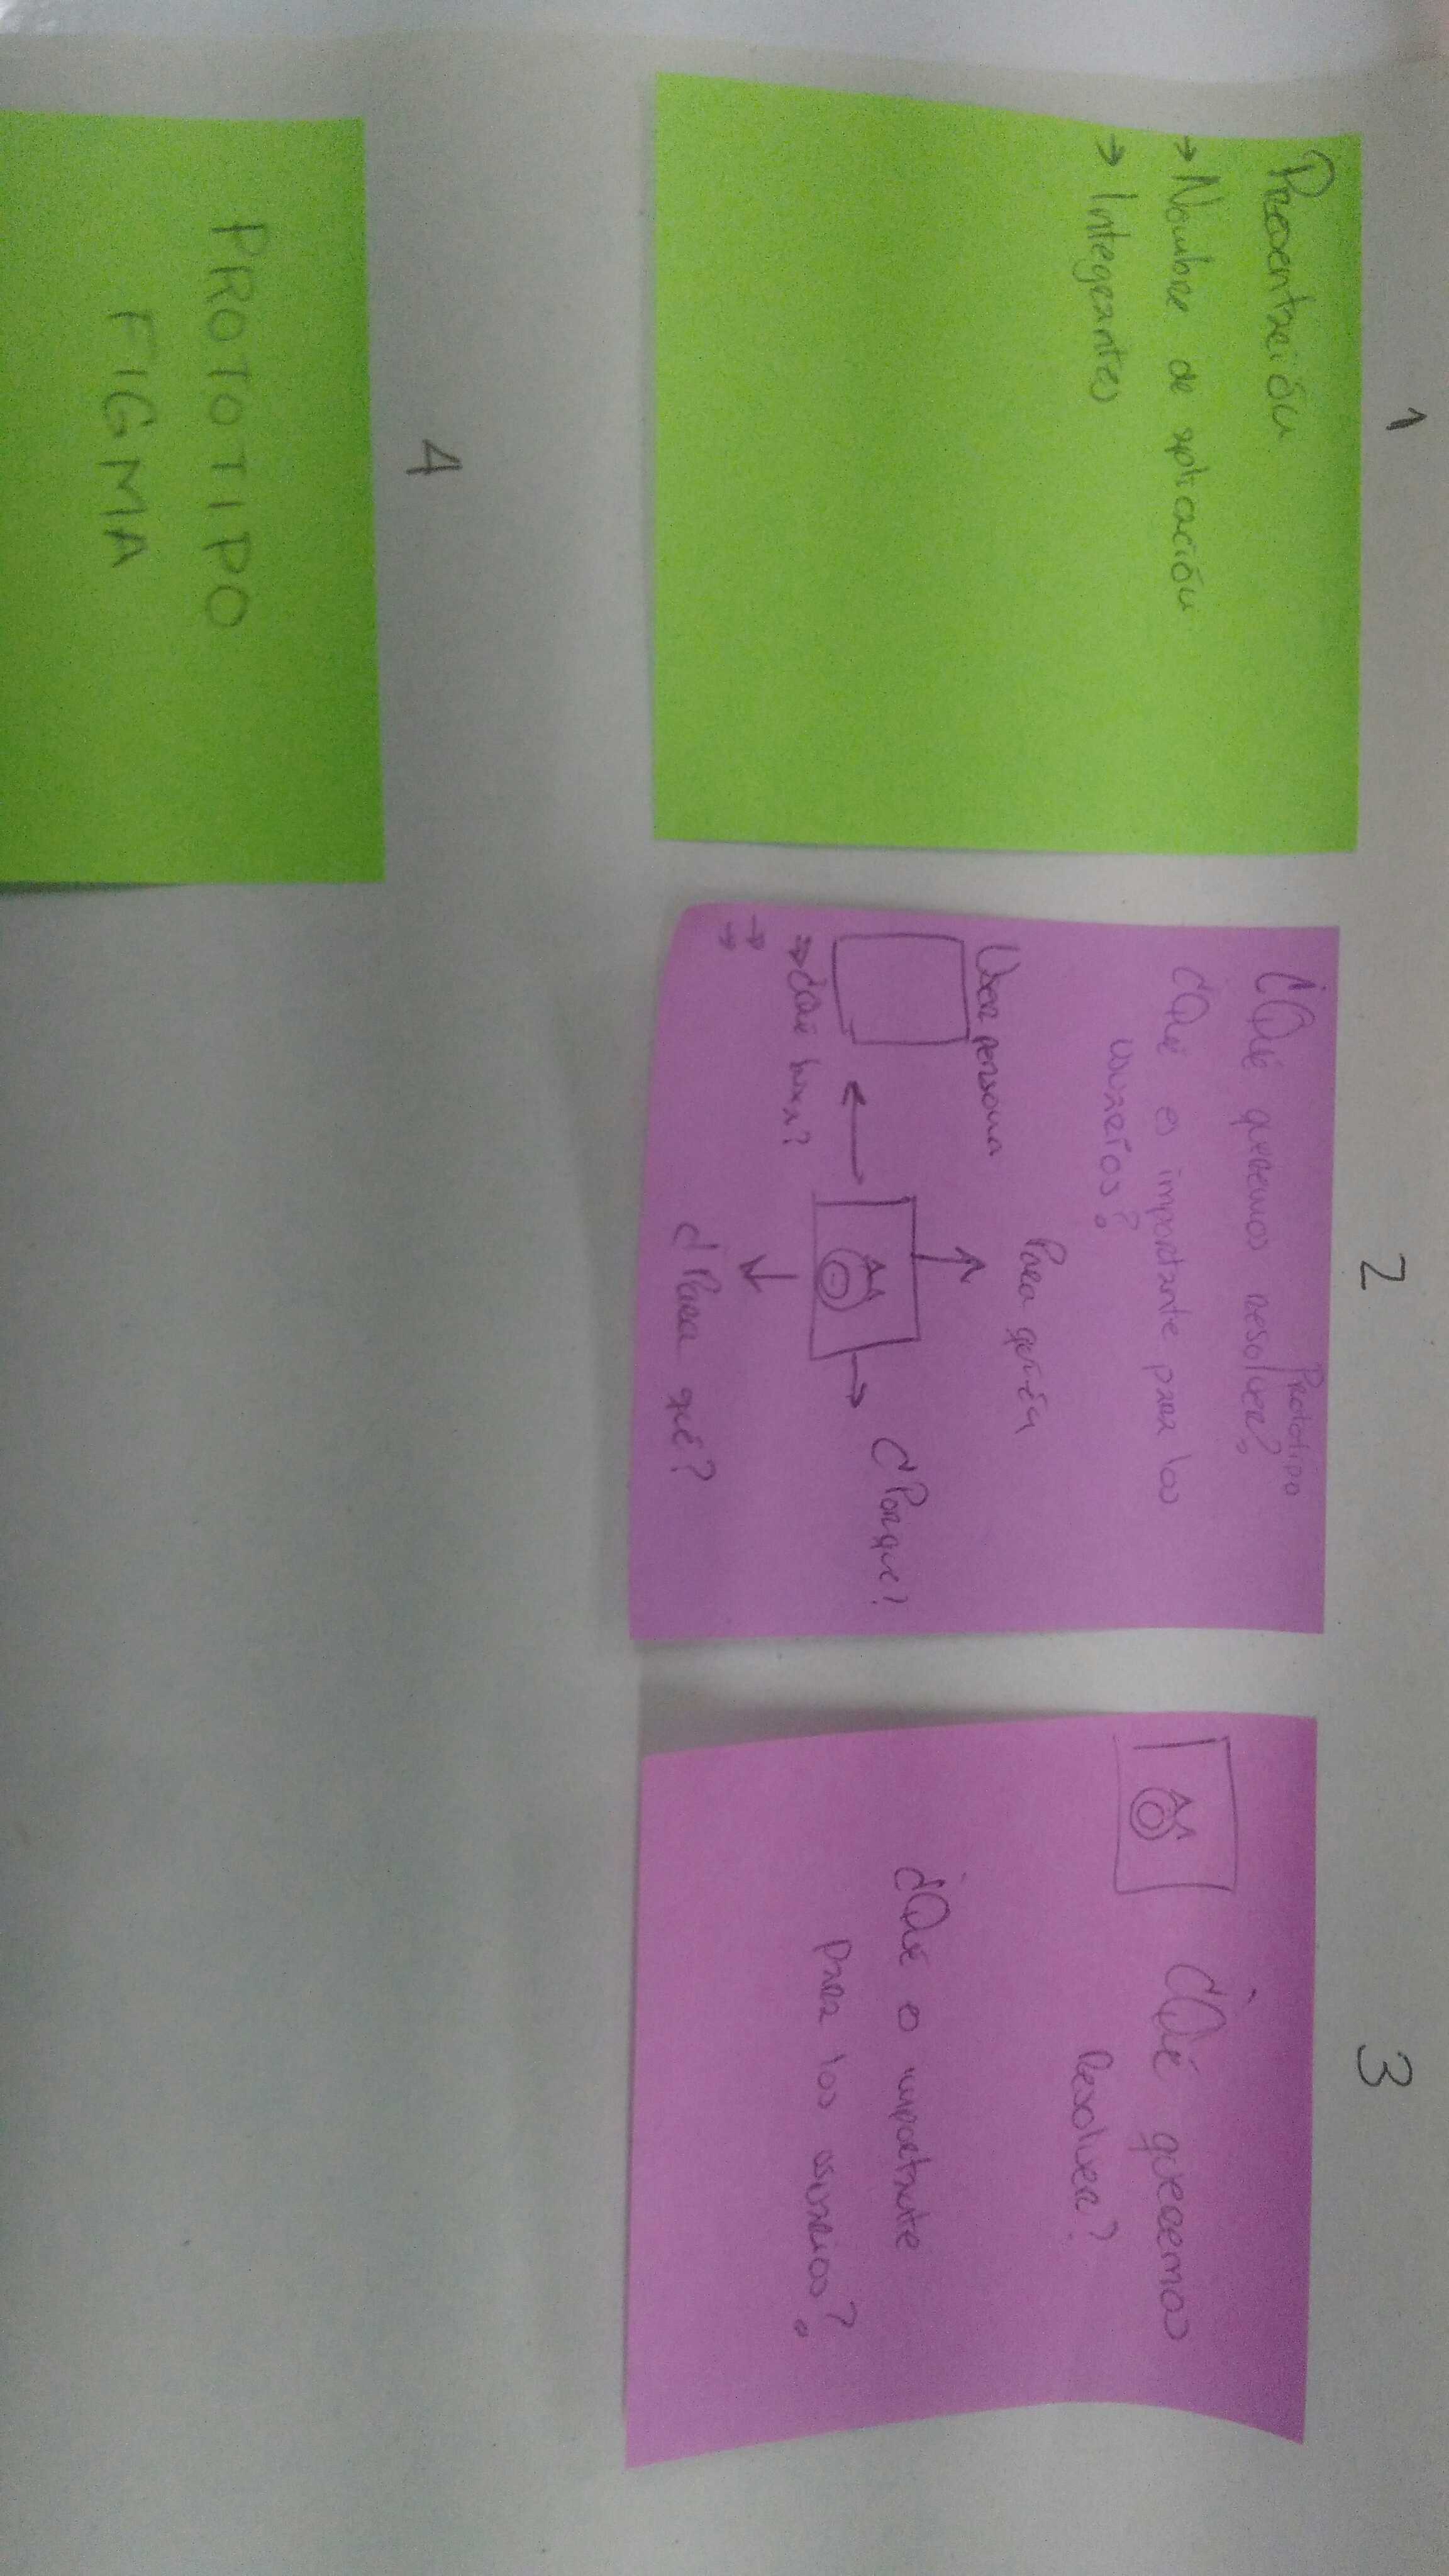 1
Presentación
→ Nombre de aplicación
→ Integrantes
2
Prototipo
¿Qué queremos resolver?
¿Qué es importante para los
usuarios?
User persona
Para quién
¿Porque?
¿Para qué?
3
¿Qué queremos
Resolver?
¿Qué es importante
para los usuarios?
4
PROTOTIPO
FIGMA